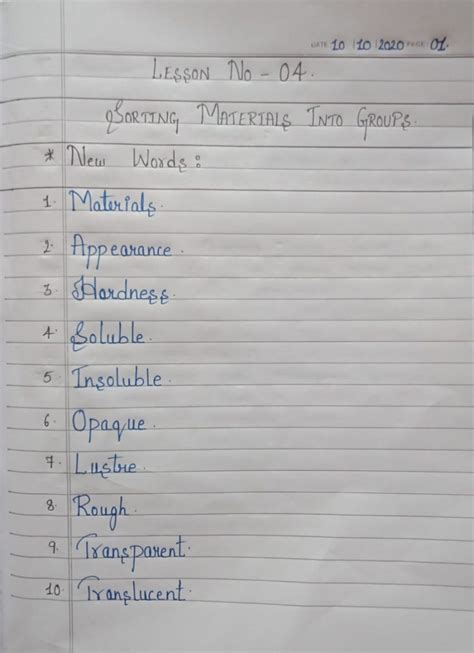 DATE 10 10 2020 PAGE 01.
LESSON NO - 04.
SORTING MATERIALS INTO GROUPS.
* New Words:
1. Materials.
2. Appearance.
3. Hardness.
4. Soluble.
5. Insoluble.
6. Opaque.
7. Lustre.
8. Rough.
9. Transparent.
10. Translucent.